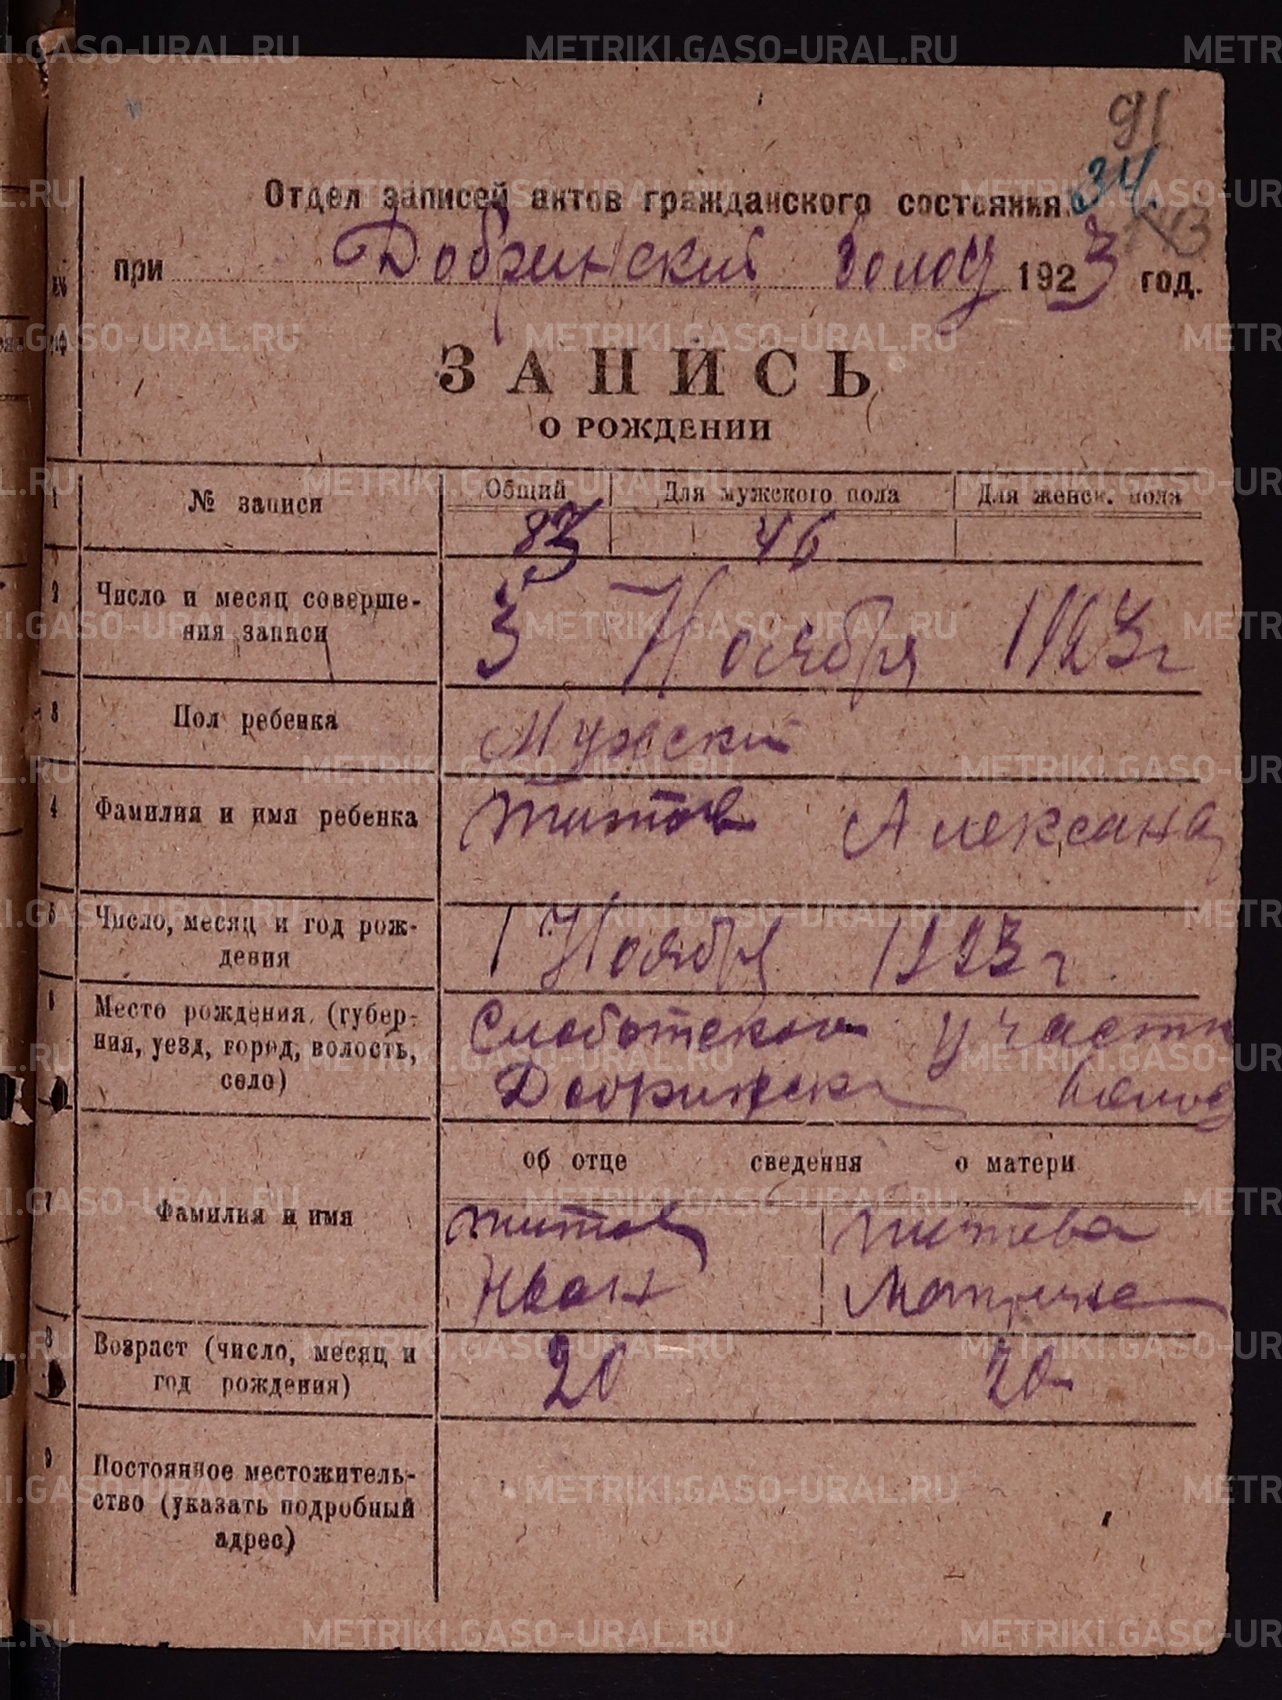 91
34
Отдел записей актов гражданского состояния
при Добринский Волос 1923 год.
ЗАПИСЬ
О РОЖДЕНИИ
1 № записи Общий Для мужского пола Для женск. пола
83 46
2 Число и месяц соверше-
ния записи
3 Ноября 1923 г
3 Пол ребенка Мужский
4 Фамилия и имя ребенка Титов Александ
5 Число, месяц и год рож-
дения
1 Ноября 1923 г.
6 Место рождения (губер-
ния, уезд, город, волость,
село)
Слоботского участк
Добринск волос
об отце сведения о матери
7 Фамилия и имя
Титов Титова
Иван Матрина
8 Возраст (число, месяц и
год рождения)
20 20
9 Постоянное местожитель-
ство (указать подробный
адрес)
METRIKI.GASO-URAL.RU